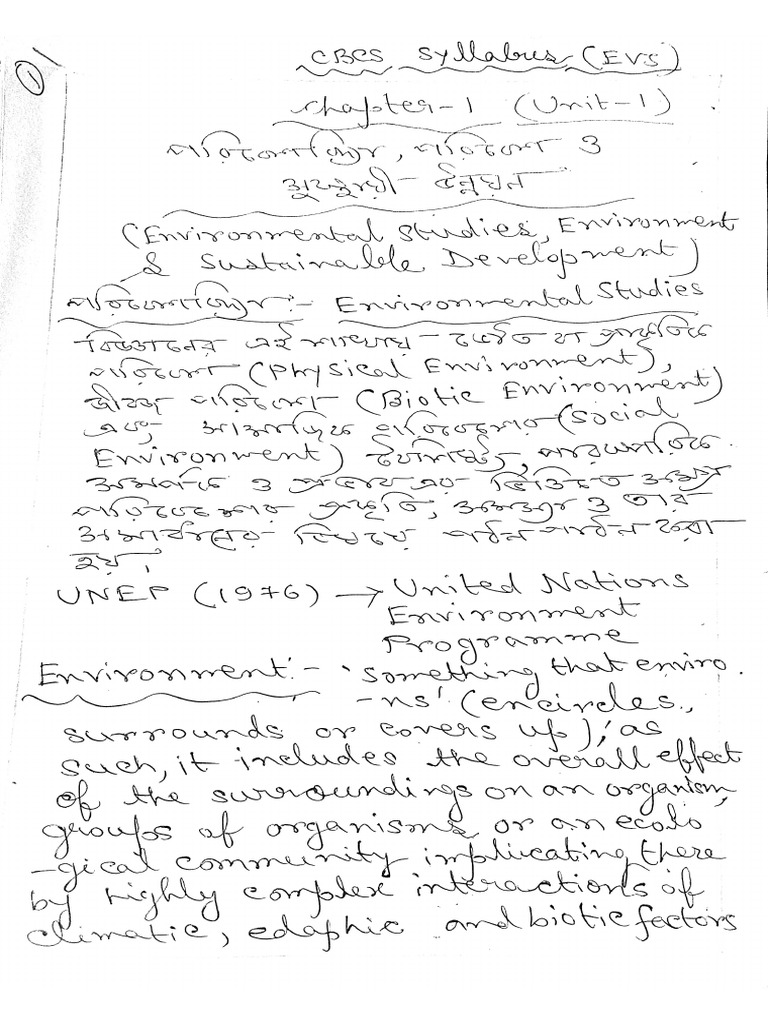 ①
CBCS Syllabus (EVS)
Chapter-1 (Unit-1)
পরিবেশবিদ্যা, পরিবেশ ও
সুস্থায়ী উন্নয়ন
(Environmental Studies, Environment
& Sustainable Development)
পরিবেশবিদ্যা :- Environmental Studies
বিজ্ঞানের এই শাখায়
পরিবেশ (Physical Environment),
জীবজ পরিবেশ (Biotic Environment)
এবং সামাজিক পরিবেশের (Social
Environment)
ও ভিত্তিতে
পরিবেশের প্রকৃতি, ও তার
বিষয়ে পঠন পাঠন করা
হয়।
UNEP (1976) → United Nations
Environment
Programme
Environment :- 'something that enviro
-ns' (encircles,
surrounds or covers up); as
such, it includes the overall effect
of the surroundings on an organism,
groups of organisms or an ecolo
-gical community implicating there
by highly complex interactions of
climatic, edaphic and biotic factors